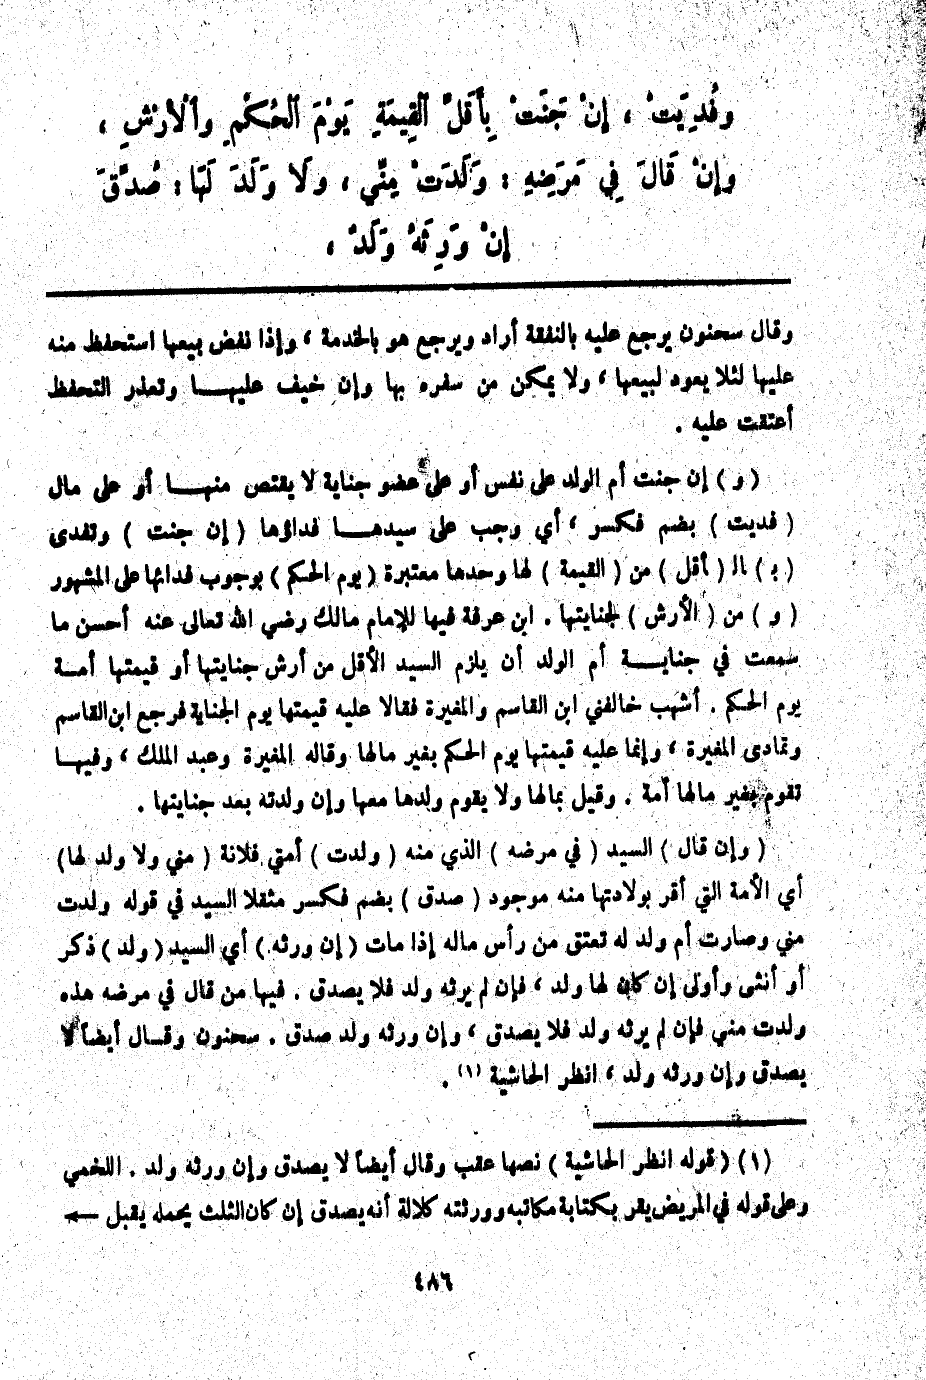 وفُدِيَتْ ، إِنْ جَنَتْ بِأَقَلِّ ٱلْقِيمَةِ يَوْمَ ٱلْحُكْمِ وٱلْأَرْشِ ،
وإِنْ قَالَ فِي مَرَضِهِ : وَلَدَتْ مِنِّي ، وَلَا وَلَدَ لَهَا : صُدِّقَ
إِنْ وَرِثَهُ وَلَدٌ ،
وقال سحنون يرجع عليه بالنفقة أراد ويرجع هو بالخدمة ، وإذا نقض بيعها استحفظ منه
عليها لئلا يعود لبيعها ، ولا يمكن من سفره بها وإن خيف عليهـــا وتعذر التحفظ
أعتقت عليه .
( و ) إن جنت أم الولد على نفس أو على عضو جناية لا يقتص منهـــا أو على مال
( فديت ) بضم فكسر ، أي وجب على سيدهـــا فداؤها ( إن جنت ) وتفدى
( بـ ) الـ ( أقل ) من ( القيمة ) لها وحدها معتبرة ( يوم الحكم ) بوجوب فدائها على المشهور
( و ) من ( الأرش ) لجنايتها . ابن عرفة فيها للإمام مالك رضي الله تعالى عنه أحسن ما
سمعت في جنايـــة أم الولد أن يلزم السيد الأقل من أرش جنايتها أو قيمتها أمــة
يوم الحكم . أشهب خالفني ابن القاسم والمغيرة فقالا عليه قيمتها يوم الجناية فرجع ابن القاسم
وتمادى المغيرة ، وإنما عليه قيمتها يوم الحكم بغير مالها وقاله المغيرة وعبد الملك ، وفيهــا
تقوم بغير مالها أمة . وقيل بمالها ولا يقوم ولدها معها وإن ولدته بعد جنايتها .
( وإن قال ) السيد ( في مرضه ) الذي منه ( ولدت ) أمتي فلانة ( مني ولا ولد لها )
أي الأمة التي أقر بولادتها منه موجود ( صدق ) بضم فكسر مثقلا السيد في قوله ولدت
مني وصارت أم ولد له تعتق من رأس ماله إذا مات ( إن ورثه ) أي السيد ( ولد ) ذكر
أو أنثى وأولى إن كان لها ولد ، فإن لم يرثه ولد فلا يصدق . فيها من قال في مرضه هذه
ولدت مني فإن لم يرثه ولد فلا يصدق ، وإن ورثه ولد صدق . سحنون وقــال أيضاً لا
يصدق وإن ورثه ولد ، انظر الحاشية (١) .
(١) ( قوله انظر الحاشية ) نصها عقب وقال أيضاً لا يصدق وإن ورثه ولد . اللخمي
وعلى قوله في المريض يقر بكتابة مكاتبه وورثته كلالة أنه يصدق إن كان الثلث يحمله يقبل ←
٤٨٦